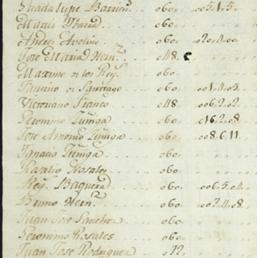 Guadalupe Barrien.. . 060. .. 005.1.5.
Marcos Madrid .. 060.
Andres Avelino .. 060 .. 02.4.00
Jose Maria Hern.z .. 048.
Maximo de los Reys. .. 060.
Faustino de Santiago .. 060. .. 001.4.03
Victoriano Franco .. 048. .. 006.2.02
Geronimo Zuñiga .. 060. .. 016.2.08
Jose Antonio Zuñiga .. 060. .. 008.6.11.
Ignacio Zuñiga .. 060.
Rosalio Rosales .. 060.
Rey. Baquera .. 060. .. 006.5.04
Bruno Hern.z .. 060. .. 002.4.08
Juan Jose Sanchez .. 060.
Geronimo Rosales .. 060.
Juan Jose Rodriguez .. 072.